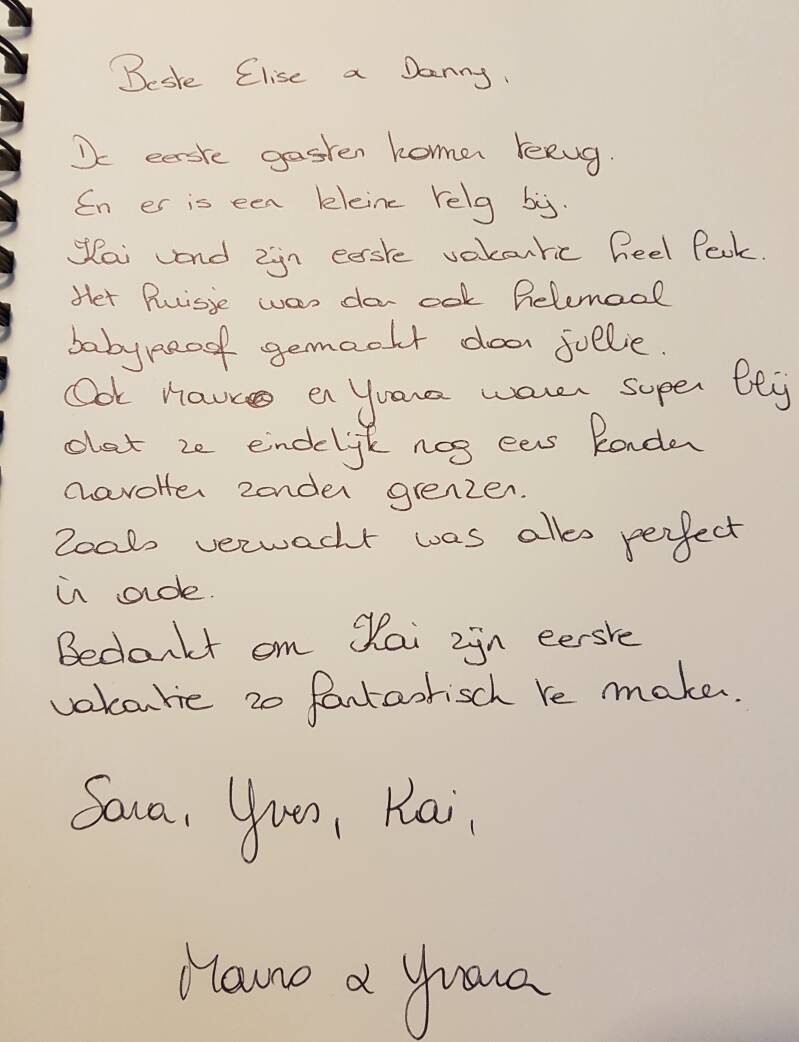 Beste Elise & Danny,
De eerste gasten komen terug.
En er is een kleine telg bij.
Kai vond zijn eerste vakantie heel leuk.
Het huisje was dan ook helemaal
babyproof gemaakt door jullie.
Ook Mauro en Yvara waren super blij
dat ze eindelijk nog eens konden
ravotten zonder grenzen.
Zoals verwacht was alles perfect
in orde.
Bedankt om Kai zijn eerste
vakantie zo fantastisch te maken.
Sara, Yves, Kai,
Mauro & Yvara